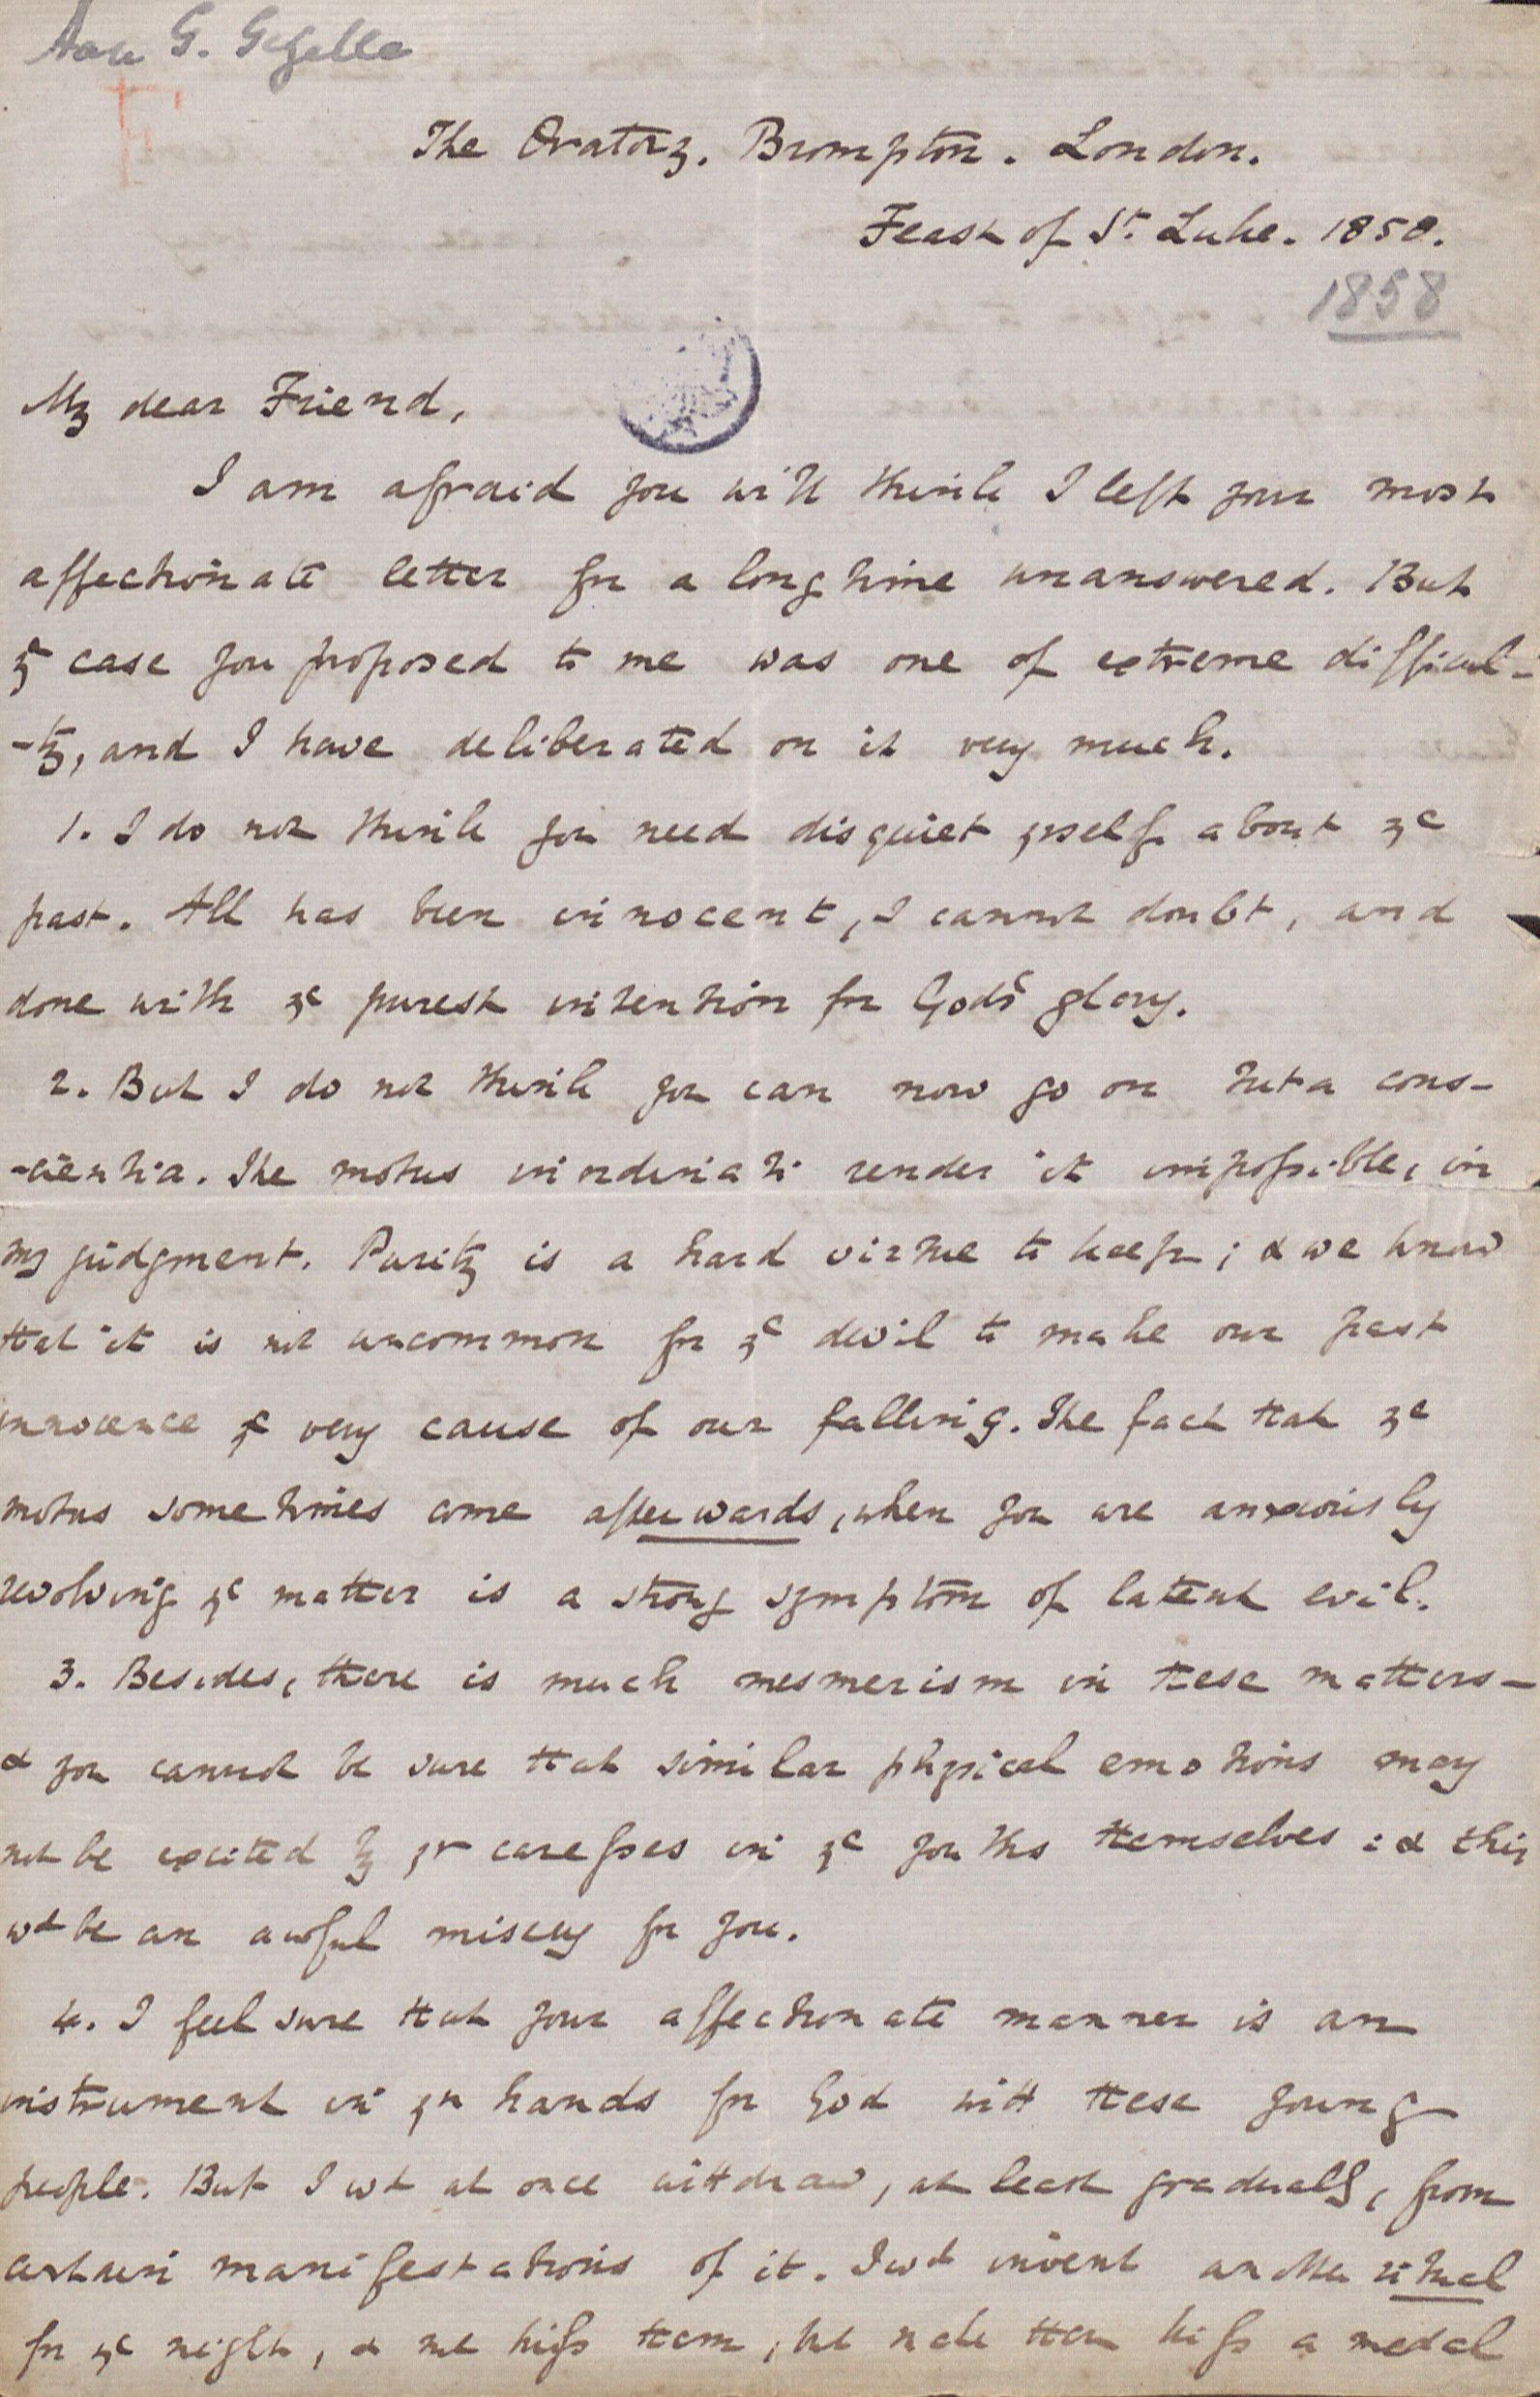 Aan G. Gezelle
The Oratory. Brompton. London.
Feast of St. Luke. 1858.
1858
My dear Friend,
I am afraid you will think I left your most
affectionate letter for a long time unanswered. But
ye case you proposed to me was one of extreme difficul-
-ty, and I have deliberated on it very much.
1. I do not think you need disquiet yrself about ye
past. All has been innocent, I cannot doubt, and
done with ye purest intention for God's glory.
2. But I do not think you can now go on tuta cons-
-cientia. The motus inordinati render it impossible, in
my judgment. Purity is a hard virtue to keep; & we know
that it is not uncommon for ye devil to make our past
innocence ye very cause of our falling. The fact that ye
motus sometimes come afterwards, when you are anxiously
revolving ye matter is a strong symptom of latent evil.
3. Besides, there is much mesmerism in these matters—
& you cannot be sure that similar physical emotions may
not be excited by yr caresses in ye youths themselves: & this
wd be an awful misery for you.
4. I feel sure that your affectionate manner is an
instrument in yr hands for God with these young
people. But I wd at once withdraw, at least gradually, from
certain manifestations of it. I wd invent another ritual
for ye night, & not kiss them, but make them kiss a medal